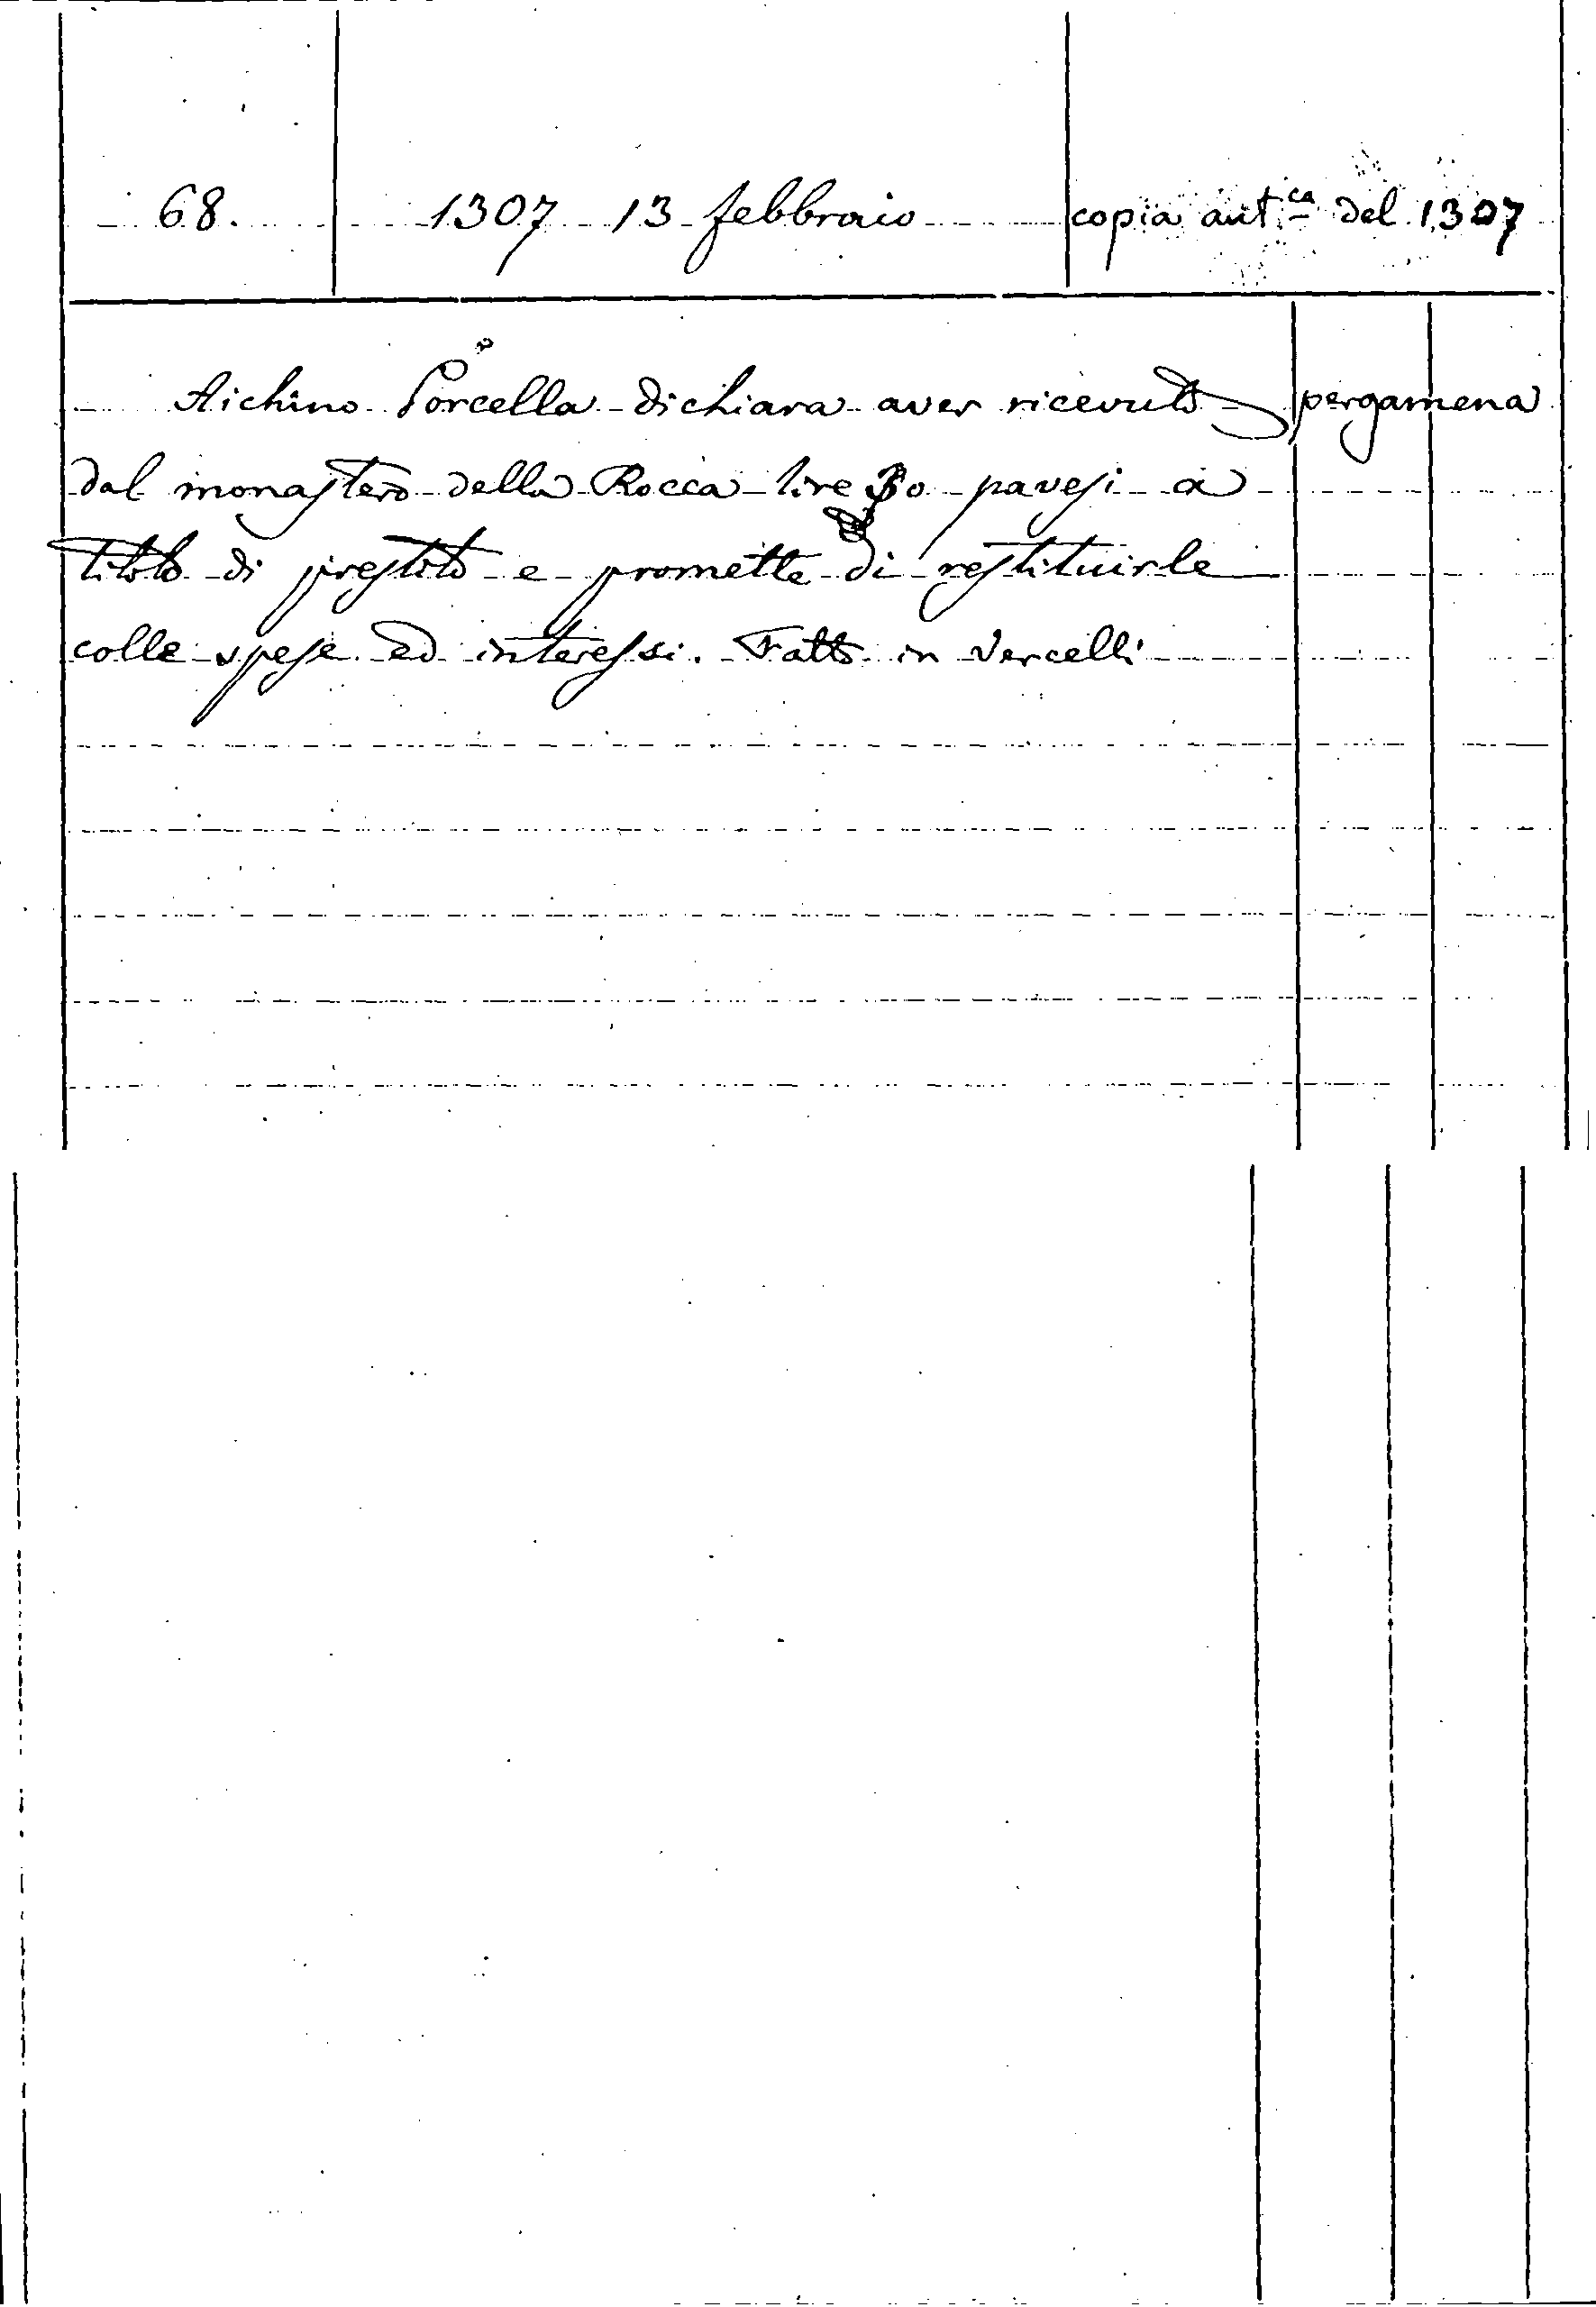 68. 1307 13 febbraio copia aut.ca del 1307
Aichino Porcella dichiara aver ricevuto pergamena
dal monastero della Rocca lire 30 pavesi a
titolo di prestito e promette di restituirle
colle spese ed interessi. Fatto in Vercelli